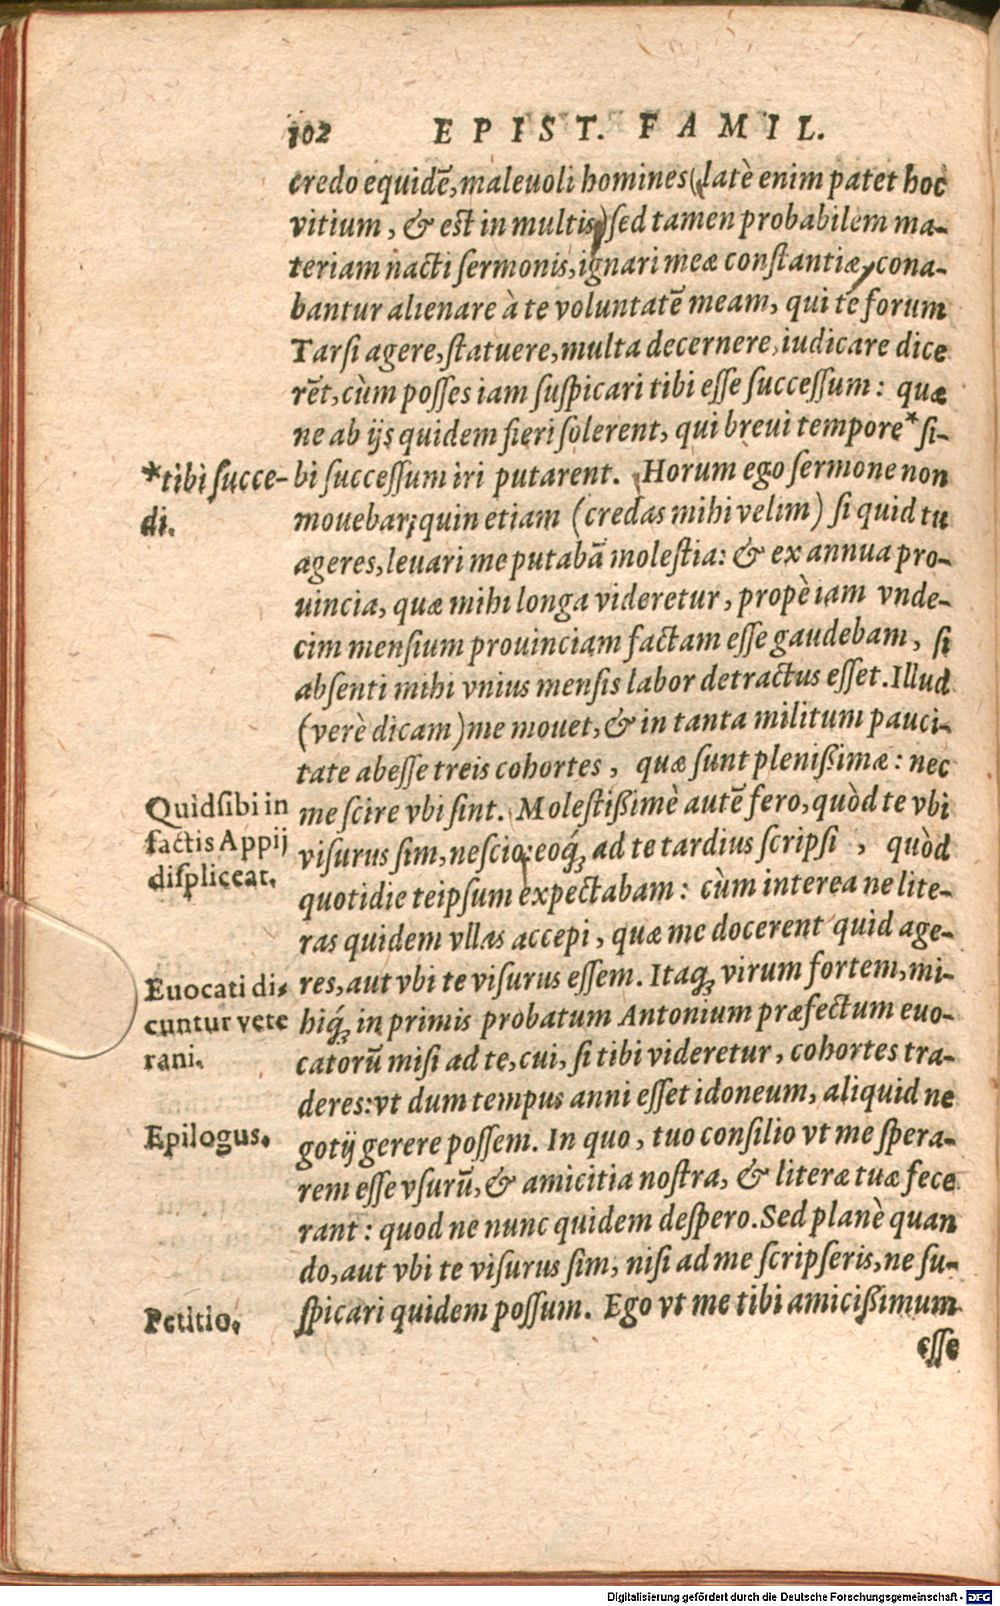 102 EPIST. FAMIL.
credo equidē, maleuoli homines (latè enim patet hoc
vitium, & est in multis) sed tamen probabilem ma-
teriam nacti sermonis, ignari meæ constantiæ, cona-
bantur alienare à te voluntatē meam, qui te forum
Tarsi agere, statuere, multa decernere, iudicare dice
rēt, cùm posses iam suspicari tibi esse successum: quæ
ne ab ijs quidem fieri solerent, qui breui tempore * si-
bi successum iri putarent. Horum ego sermone non
mouebar; quin etiam (credas mihi velim) si quid tu
ageres, leuari me putabā molestia: & ex annua pro-
uincia, quæ mihi longa videretur, propè iam vnde-
cim mensium prouinciam factam esse gaudebam, si
absenti mihi vnius mensis labor detractus esset. Illud
(verè dicam) me mouet, & in tanta militum pauci-
tate abesse treis cohortes, quæ sunt plenißimæ: nec
me scire vbi sint. Molestißimè autē fero, quòd te vbi
visurus sim, nescio: eoq́; ad te tardius scripsi, quòd
quotidie teipsum expectabam: cùm interea ne lite-
ras quidem vllas accepi, quæ me docerent quid age-
res, aut vbi te visurus essem. Itaq; virum fortem, mi-
hiq́; in primis probatum Antonium præfectum euo-
catorū misi ad te, cui, si tibi videretur, cohortes tra-
deres: vt dum tempus anni esset idoneum, aliquid ne
gotij gerere possem. In quo, tuo consilio vt me spera-
rem esse vsurū, & amicitia nostra, & literæ tuæ fece
rant: quod ne nunc quidem despero. Sed planè quan
do, aut vbi te visurus sim, nisi ad me scripseris, ne su-
spicari quidem possum. Ego vt me tibi amicißimum
esse
*tibi succe-
di.
Quid sibi in
factis Appij
displiceat.
Euocati di-
cuntur vete
rani.
Epilogus.
Petitio.
Digitalisierung gefördert durch die Deutsche Forschungsgemeinschaft - DFG